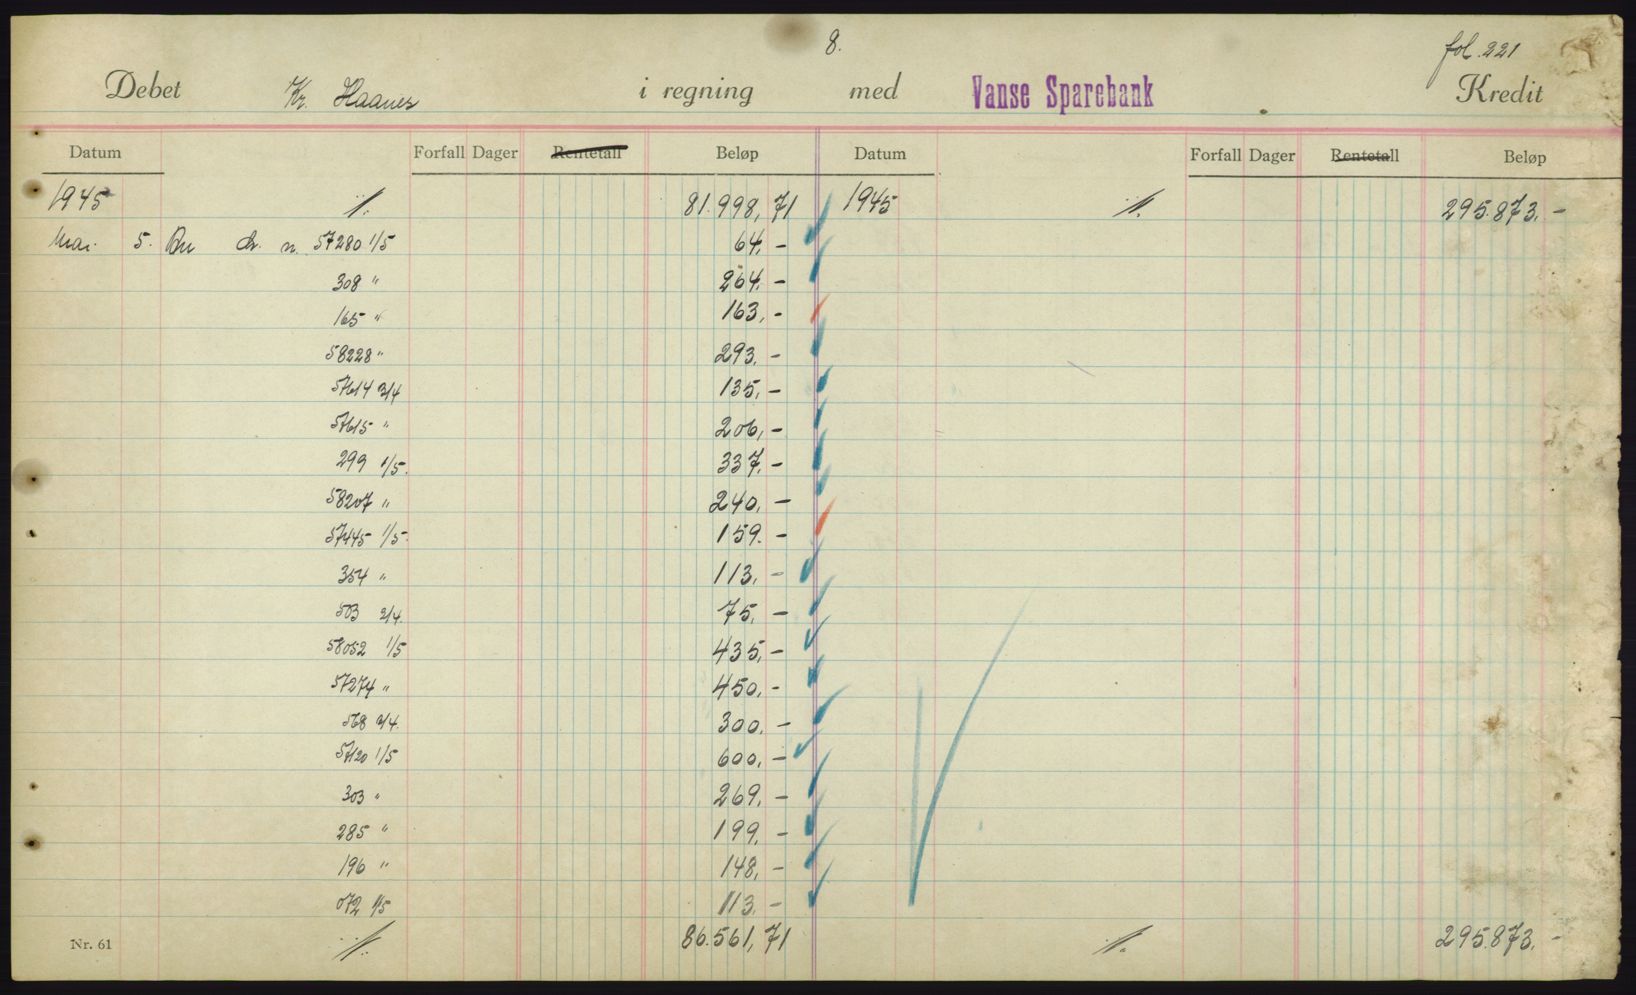 8.
fol. 221
Debet Kr. Haanes i regning med Vanse Sparebank Kredit
Datum Forfall Dager Rentetall Beløp Datum Forfall Dager Rentetall Beløp
1945 81.998,71 1945 295.873.-
Mai. 5. n. 57280 1/5 64,-
308 " 264.-
165 " 163,-
58228 " 293.-
57614 2/4 135,-
57615 " 206,-
299 1/5. 337,-
58207 " 240,-
57445 1/5. 159.-
354 " 113,-
503 2/4. 75,-
58052 1/5 435,-
57274 " 450,-
568 2/4. 300.-
57120 1/5 600,-
303 " 269,-
285 " 199,-
196 " 148,-
072 1/5 113,-
Nr. 61 86.561,71 295.873.-